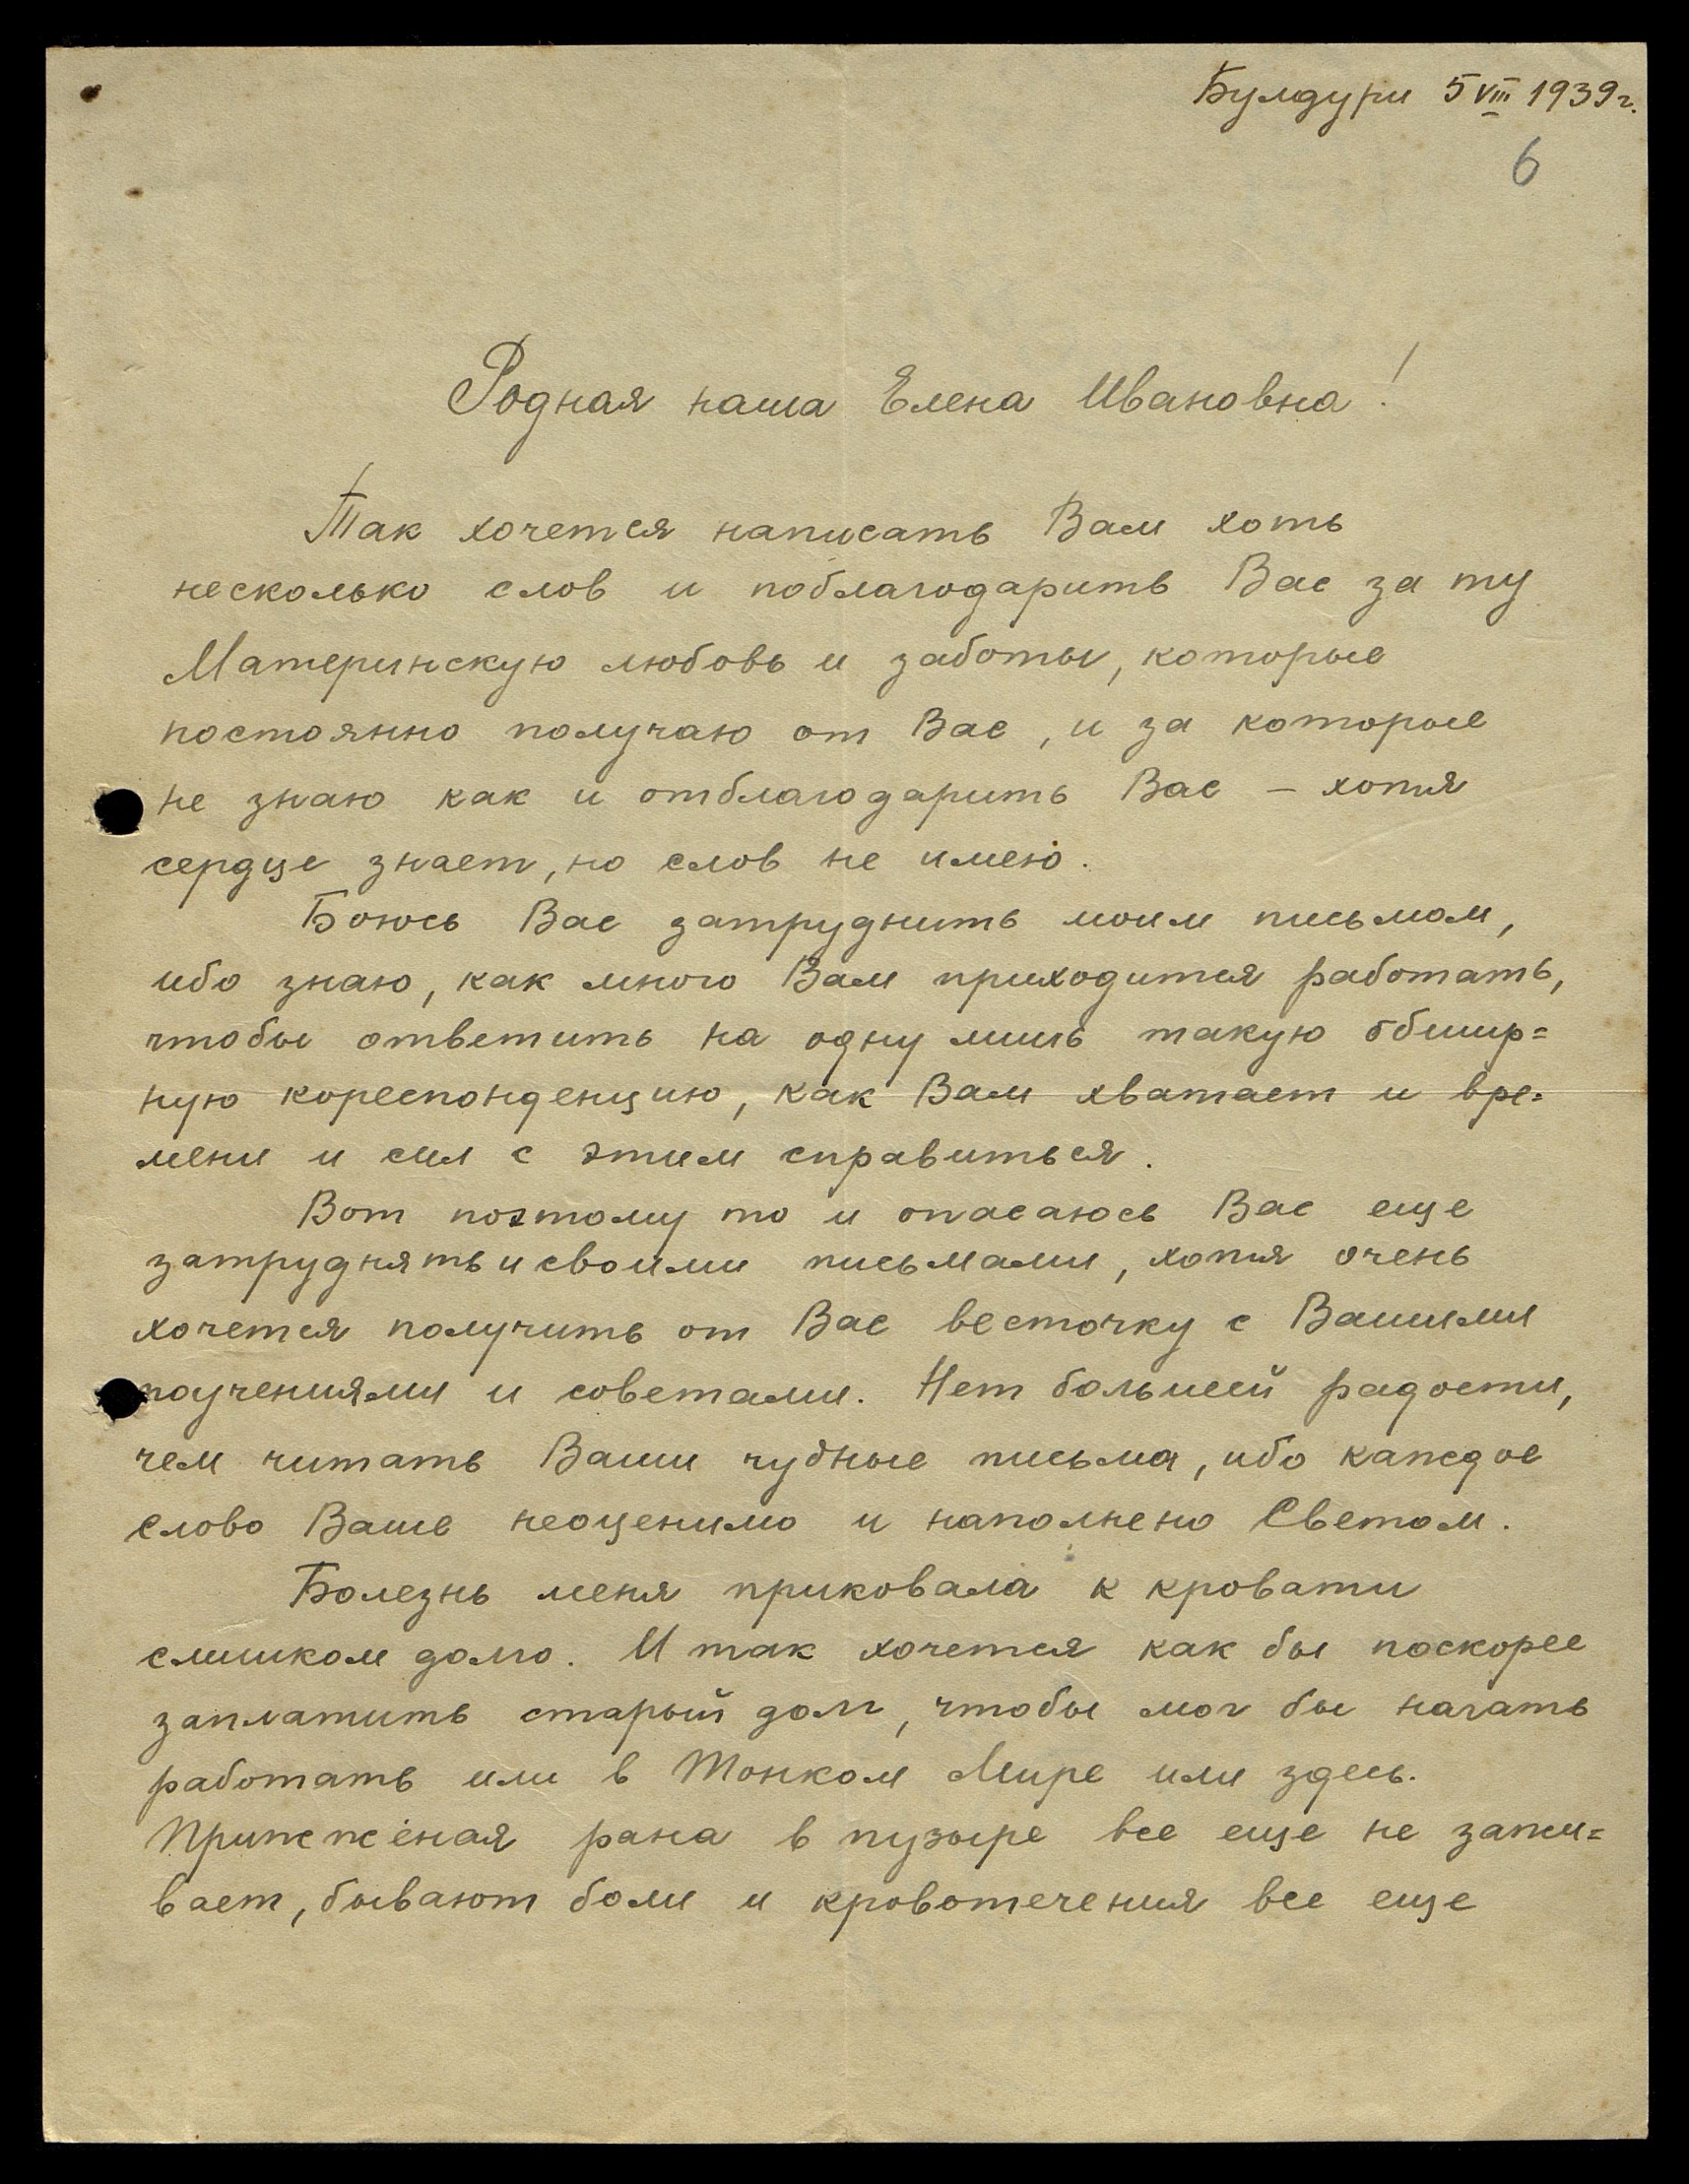 Булдури 5 VIII 1939 г.
6
Родная наша Елена Ивановна!
Так хочется написать Вам хоть
несколько слов и поблагодарить Вас за ту
Материнскую любовь и заботы, которые
постоянно получаю от Вас, и за которые
не знаю как и отблагодарить Вас – хотя
сердце знает, но слов не имею.
Боюсь Вас затруднить моим письмом,
ибо знаю, как много Вам приходится работать,
чтобы ответить на одну лишь такую обшир=
ную кореспонденцию, как Вам хватает и вре=
мени и сил с этим справиться.
Вот поэтому то и опасаюсь Вас еще
затруднять и своими письмами, хотя очень
хочется получить от Вас весточку с Вашими
поучениями и советами. Нет большей радости,
чем читать Ваши чудные письма, ибо каждое
слово Ваше неоценимо и наполнено Светом.
Болезнь меня приковала к кровати
слишком долго. И так хочется как бы поскорее
заплатить старый долг, чтобы мог бы начать
работать или в Тонком Мире или здесь.
Прижжёная рана в пузыре все еще не зажи=
вает, бывают боли и кровотечения все еще